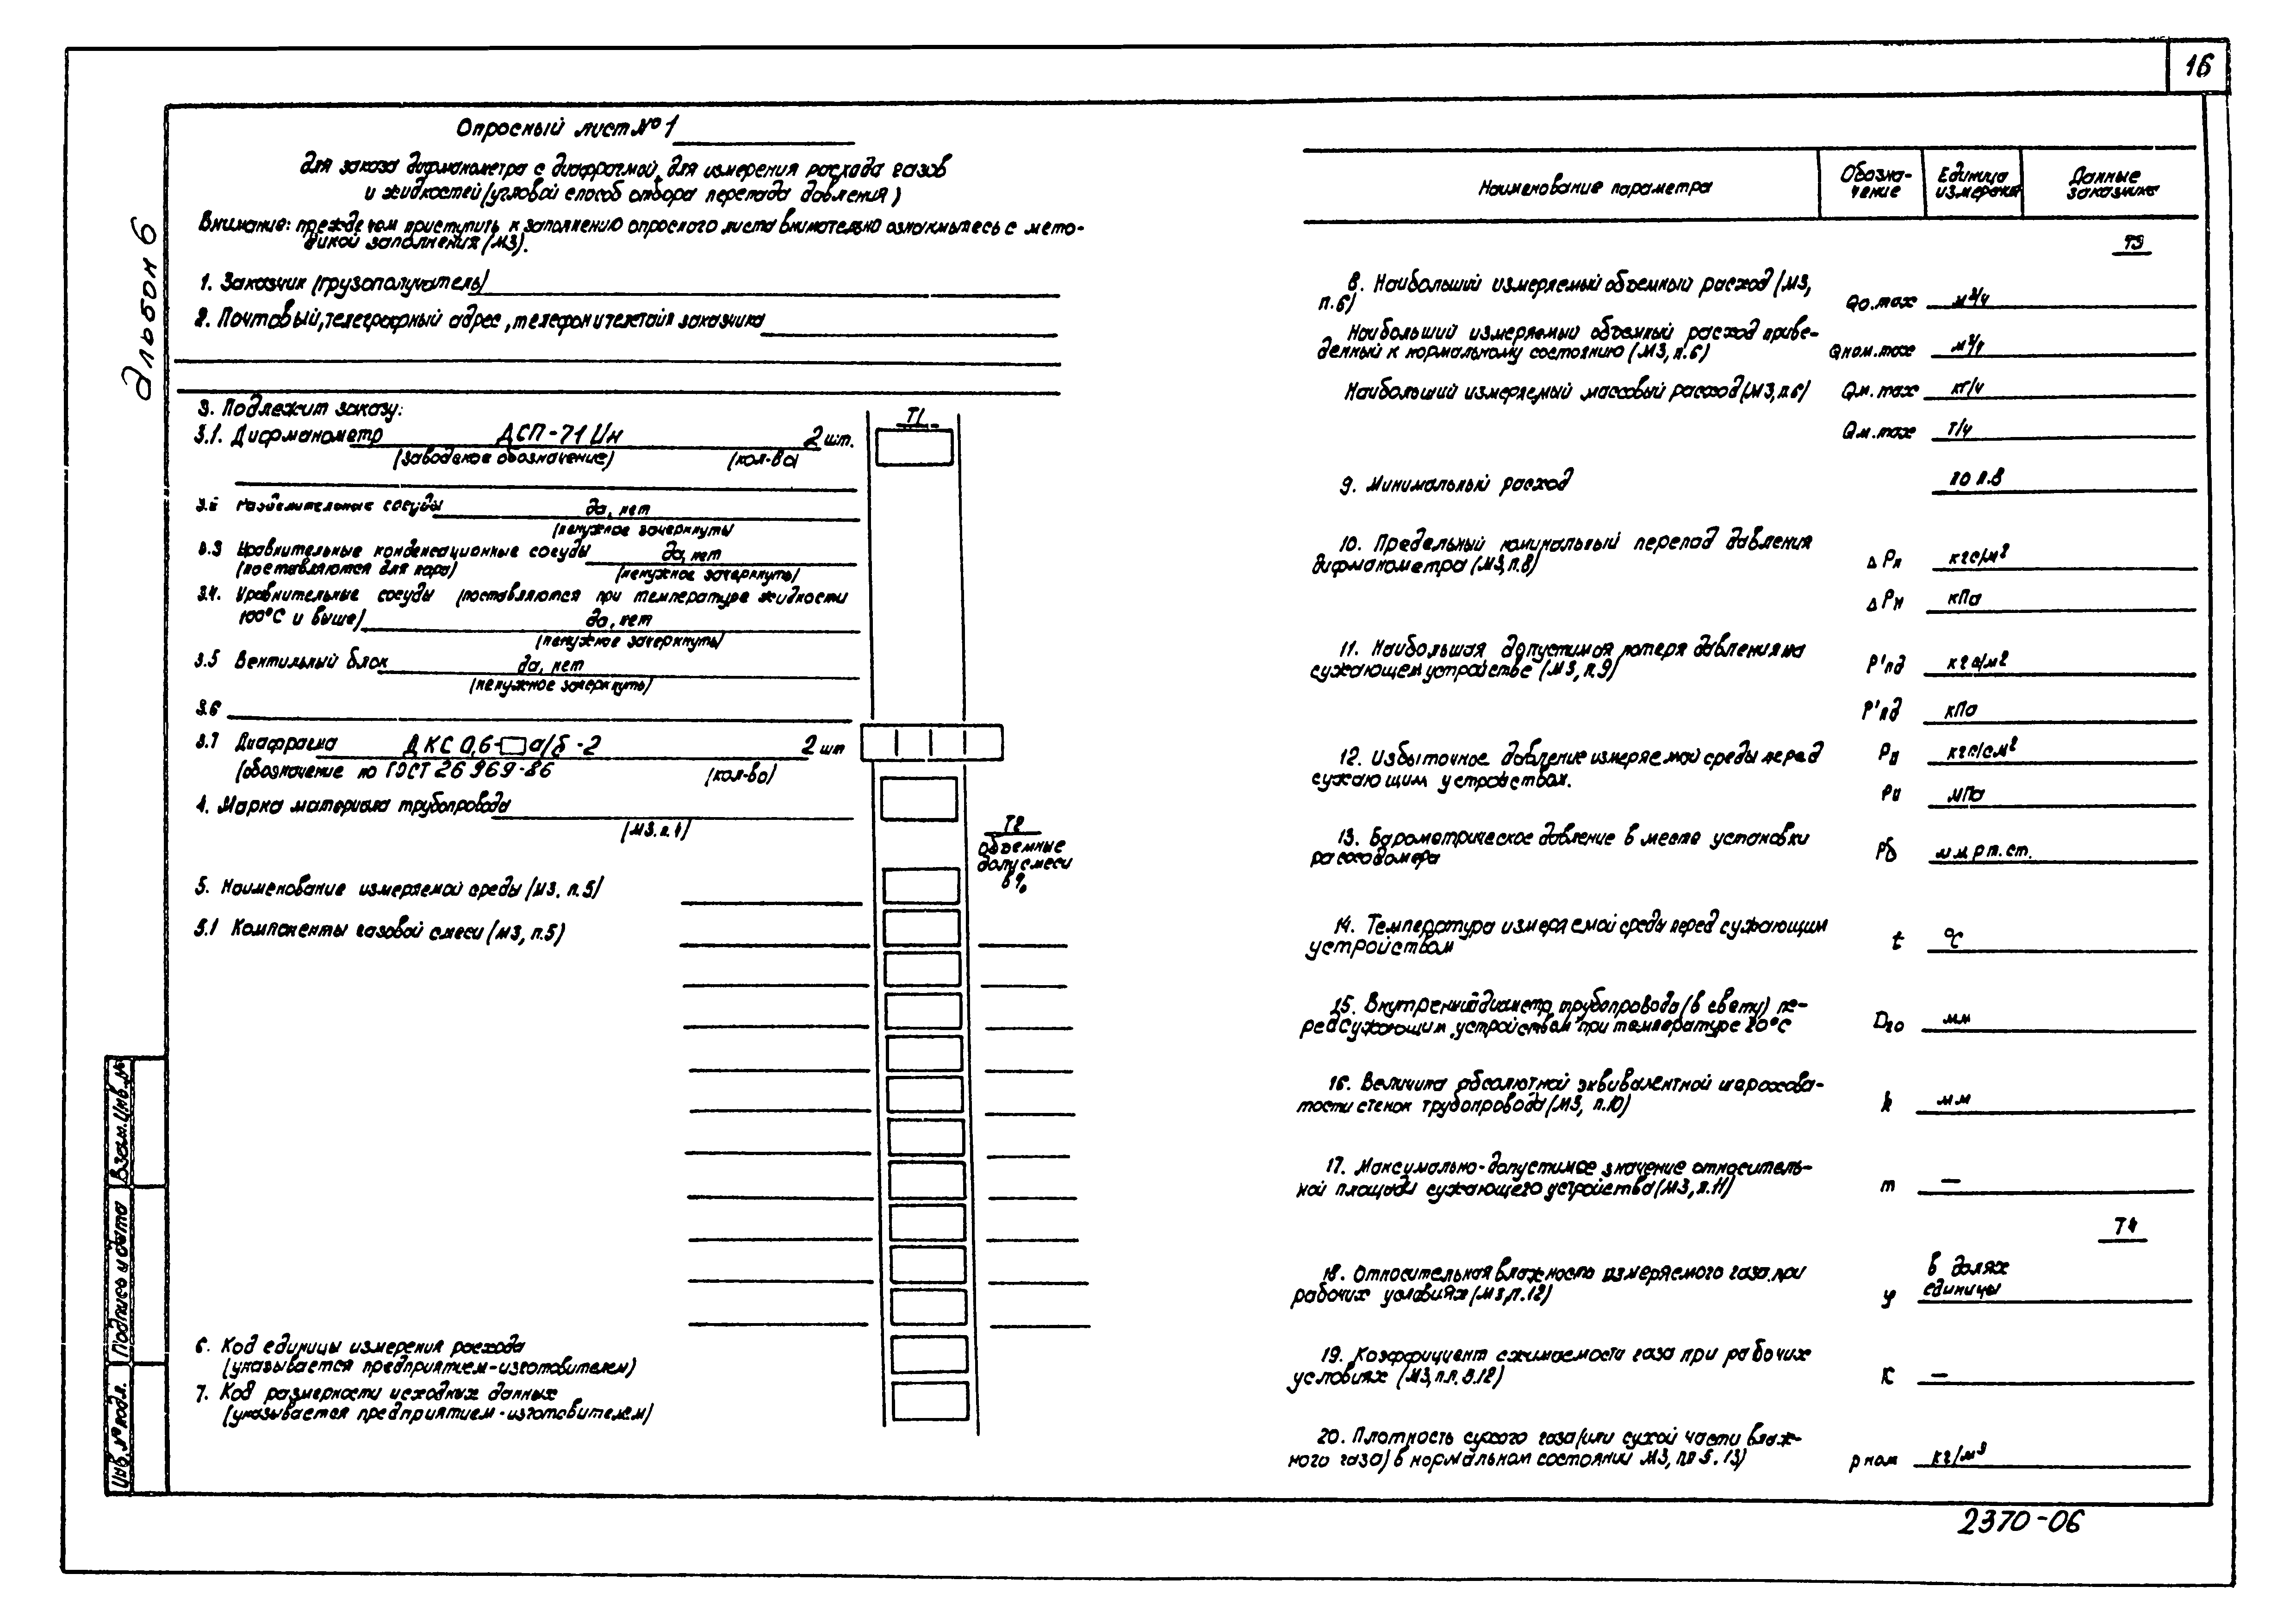 16
Альбом 6
Опросный лист №1
для заказа дифманометра с диафрагмой для измерения расхода газов
и жидкостей (угловой способ отбора перепада давления)
Внимание: прежде чем приступить к заполнению опросного листа внимательно ознакомьтесь с мето-
дикой заполнения (МЗ).
1. Заказчик (грузополучатель)
2. Почтовый, телеграфный адрес, телефон и телетайп заказчика
3. Подлежит заказу:
Т1
3.1. Дифманометр ДСП-71Ин 2 шт.
(заводское обозначение) (кол-во)
3.2 Разделительные сосуды да, нет
(ненужное зачеркнуть)
3.3 Уравнительные конденсационные сосуды да, нет
(поставляются для пара) (ненужное зачеркнуть)
3.4. Уравнительные сосуды (поставляются при температуре жидкости
100°С и выше) да, нет
(ненужное зачеркнуть)
3.5 Вентильный блок да, нет
(ненужное зачеркнуть)
3.6
3.7 Диафрагма ДКС 0,6-□ а/б-2 2 шт
(обозначение по ГОСТ 26969-86 (кол-во)
4. Марка материала трубопровода
(МЗ. п.4)
Т2
объемные
доли смеси
в %
5. Наименование измеряемой среды (МЗ. п.5)
5.1 Компоненты газовой смеси (МЗ, п.5)
6. Код единицы измерения расхода
(указывается предприятием-изготовителем)
7. Код размерности исходных данных
(указывается предприятием-изготовителем)
Наименование параметра Обозна- Единица Данные
чение измерения заказчика
Т3
8. Наибольший измеряемый объемный расход (МЗ,
п.6) Qо.max м³/ч
Наибольший измеряемый объемный расход приве-
денный к нормальному состоянию (МЗ, п.6) Qном.max м³/ч
Наибольший измеряемый массовый расход (МЗ, п.6) Qм.max кг/ч
Qм.max т/ч
9. Минимальный расход по п.8
10. Предельный номинальный перепад давления
дифманометра (МЗ, п.8) ΔPн кгс/м²
ΔPн кПа
11. Наибольшая допустимая потеря давления на
сужающем устройстве (МЗ, п.9) P'пд кгс/м²
P'пд кПа
12. Избыточное давление измеряемой среды перед Pи кгс/см²
сужающим устройством. Pи МПа
13. Барометрическое давление в месте установки
расходомера Pб мм рт. ст.
14. Температура измеряемой среды перед сужающим
устройством t °С
15. Внутренний диаметр трубопровода (в свету) пе-
ред сужающим устройством при температуре 20°С D20 мм
16. Величина абсолютной эквивалентной шерохова-
тости стенок трубопровода (МЗ, п.10) k мм
17. Максимально-допустимое значение относитель-
ной площади сужающего устройства (МЗ, п.11) m —
Т4
18. Относительная влажность измеряемого газа при в долях
рабочих условиях (МЗ, п.12) φ единицы
19. Коэффициент сжимаемости газа при рабочих
условиях (МЗ, п.п. 5.12) К —
20. Плотность сухого газа (или сухой части влаж-
ного газа) в нормальном состоянии МЗ, пп 5.13) ρ ном кг/м³
Инв. № подл. Подпись и дата Взам. инв. №
2370-06